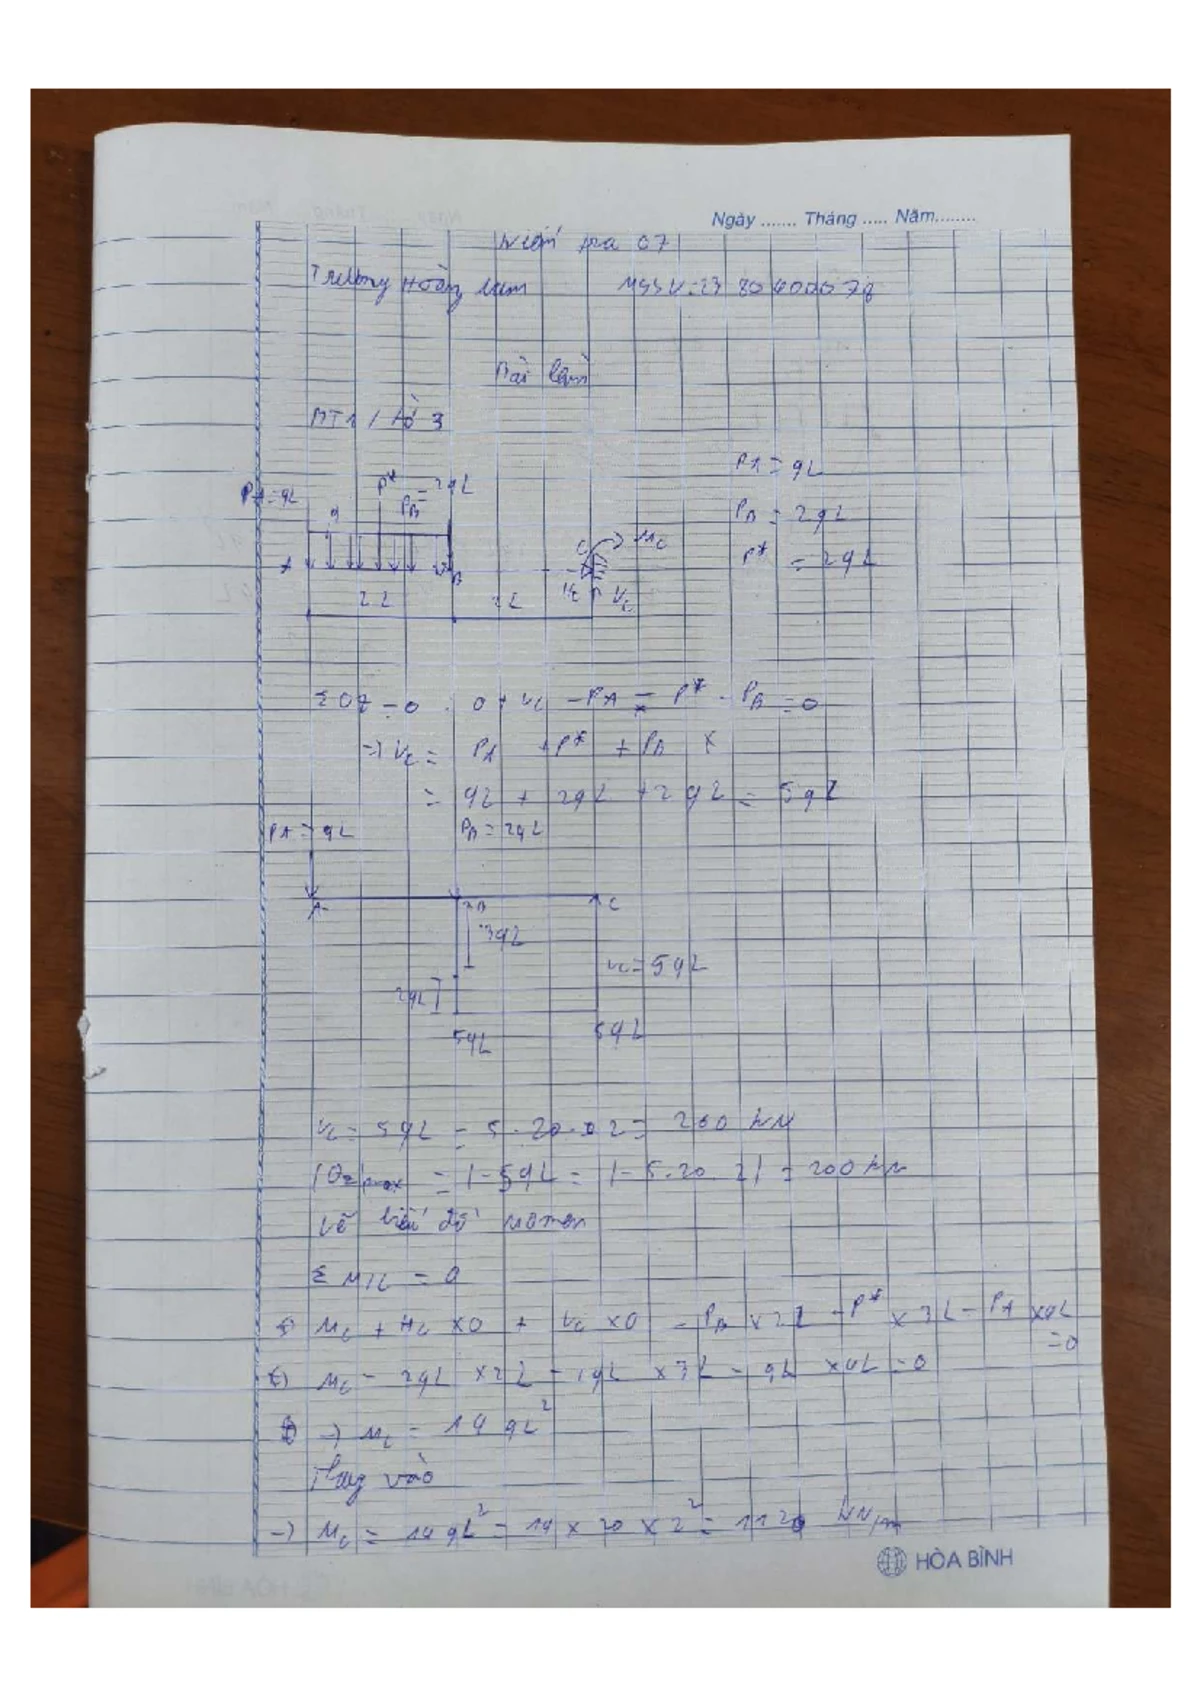 Ngày ....... Tháng ..... Năm........
Kiểm tra 07
Trương Hoàng Nam MSSV: 23 80400078
Bài làm
BT1 / tờ 3
PA = qL
PA = qL P* PB = 2qL
q
PB = 2qL
C MC
P* = 2qL
A B
HC VC
2L 2L
ΣOz = 0 0 + VC - PA - P* - PB = 0
→ VC = PA + P* + PB
= qL + 2qL + 2qL = 5qL
PA = qL PB = 2qL
A B C
3qL
VC = 5qL
2qL
5qL 5qL
VC = 5qL = 5 . 20 . 2 = 200 kN
|Qz|max = |-5qL = |-5.20.2| = 200 kN
Vẽ biểu đồ momen
ΣM/C = 0
MC + HC x0 + VC x0 - PB x 2L - P* x 3L - PA x 4L = 0
MC - 2qL x2L - 2qL x 3L - qL x4L = 0
→ MC = 14 qL²
Thay vào
→ MC = 14 qL² = 14 x 20 x 2² = 1120 kN/m
HÒA BÌNH